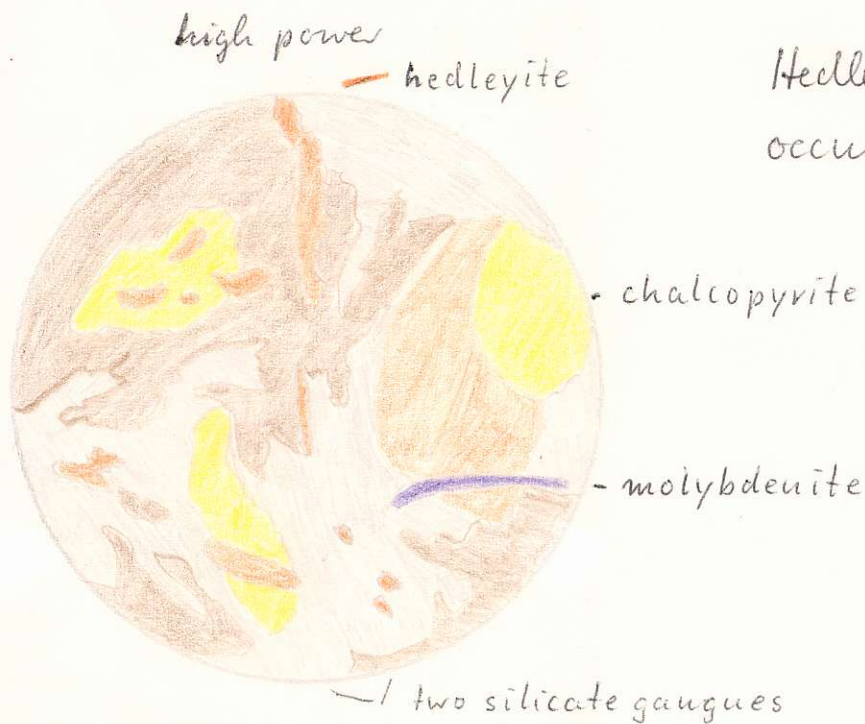 high power
hedleyite
occu
chalcopyrite
molybdenite
two silicate gaugues